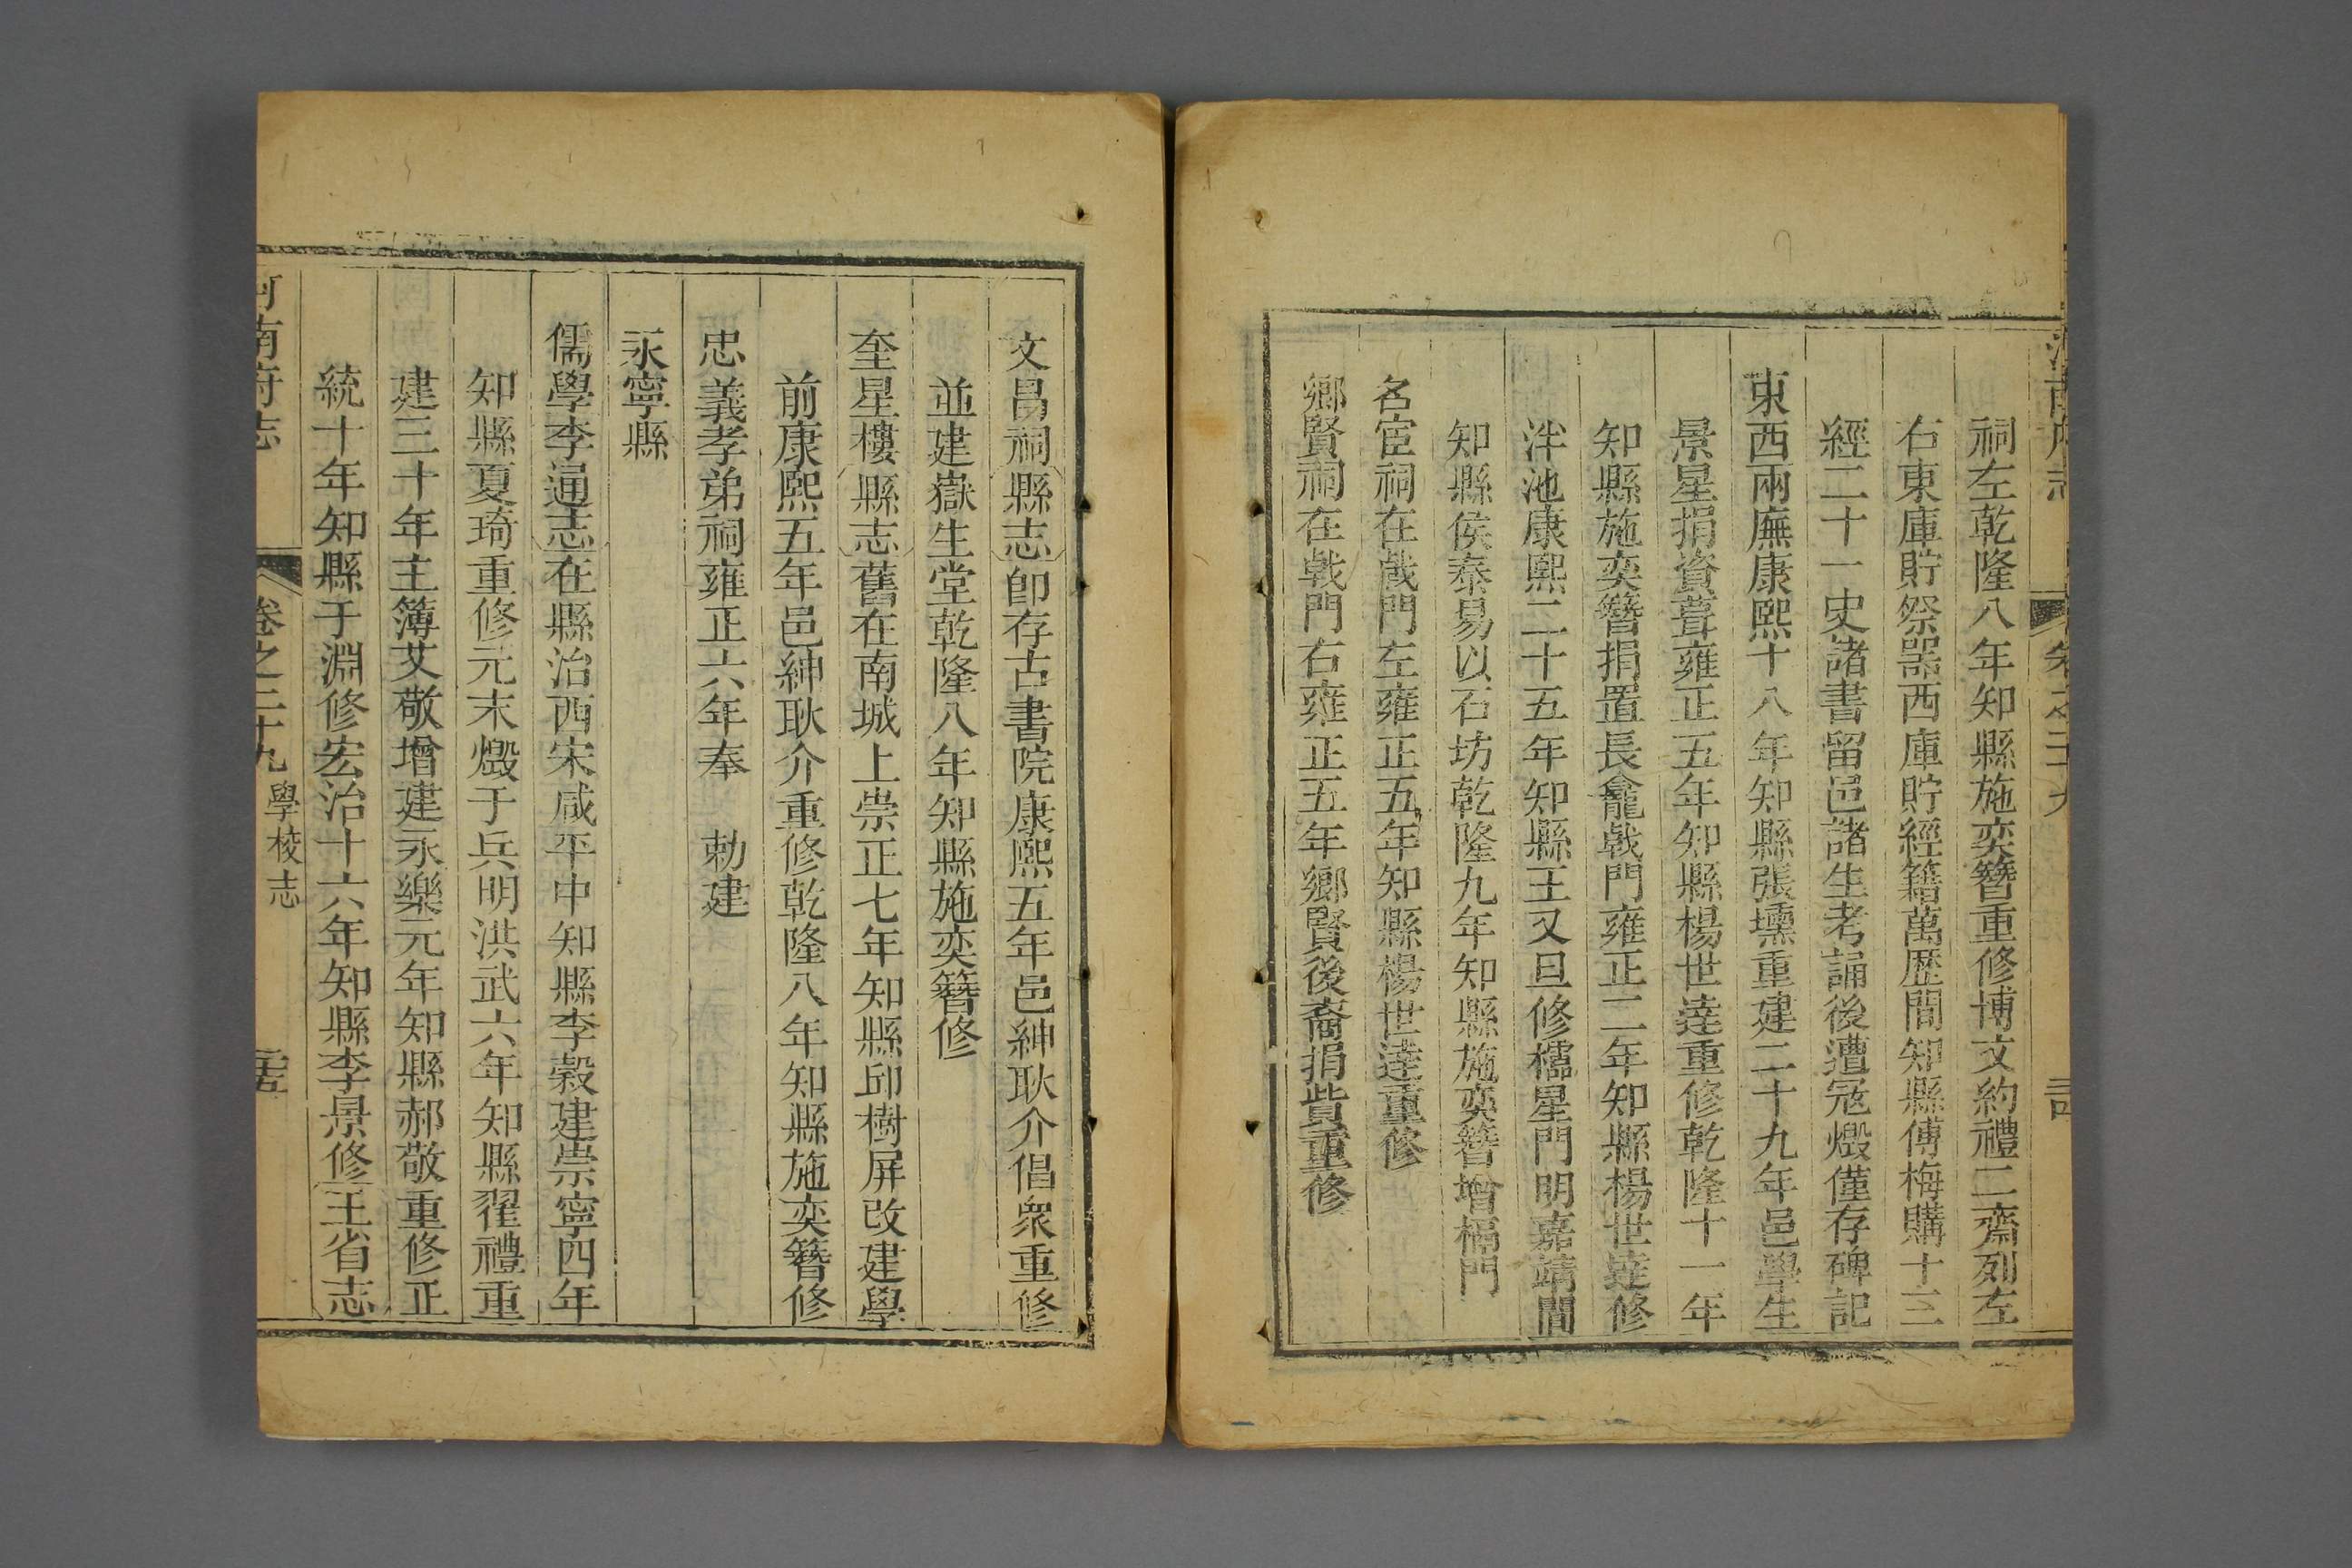 祠左乾隆八年知縣施奕簪重修博文約禮二齋列左
右東庫貯祭器西庫貯經籍萬歷間知縣傅梅購十三
經二十一史諸書留邑諸生考誦後遭冦燬僅存碑記
東西兩廡康熙十八年知縣張壎重建二十九年邑學生
景星捐資葺雍正五年知縣楊世達重修乾隆十一年
知縣施奕簪捐置長龕戟門雍正二年知縣楊世達修
泮池康熙二十五年知縣王又旦修櫺星門明嘉靖間
知縣侯泰易以石坊乾隆九年知縣施奕簪增槅門
名宦祠在戟門左雍正五年知縣楊世達重修
鄉賢祠在戟門右雍正五年鄉賢後裔捐貲重修
文昌祠縣志卽存古書院康熙五年邑紳耿介倡衆重修
並建嶽生堂乾隆八年知縣施奕簪修
奎星樓縣志舊在南城上崇正七年知縣邱樹屏改建學
前康熙五年邑紳耿介重修乾隆八年知縣施奕簪修
忠義孝弟祠雍正六年奉 勅建
永寧縣
儒學李通志在縣治西宋咸平中知縣李穀建崇寧四年
知縣夏琦重修元末燬于兵明洪武六年知縣翟禮重
建三十年主簿艾敬增建永樂元年知縣郝敬重修正
統十年知縣于淵修宏治十六年知縣李景修王省志
河南府志 卷之二十九 學校志